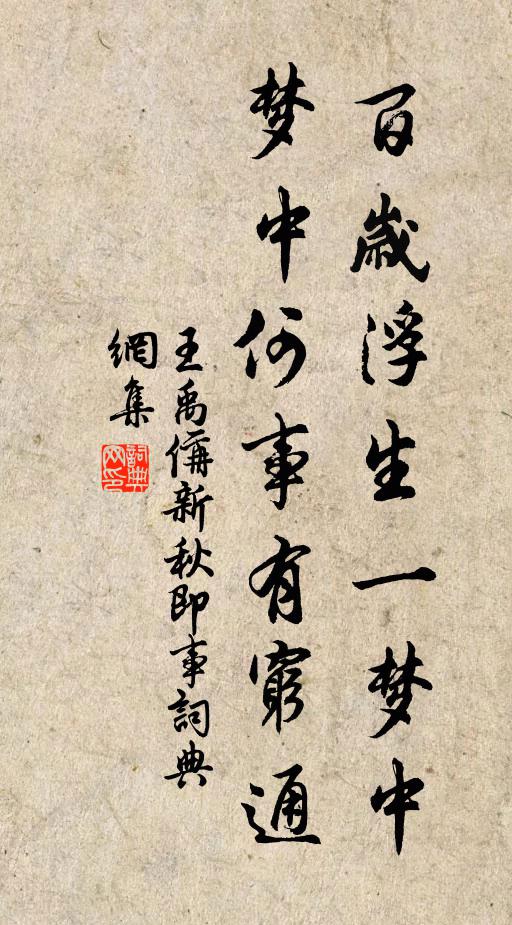 百歲浮生一梦中
梦中何事有窮通
王禹偁新秋即事詞典
網集
詞典
网印